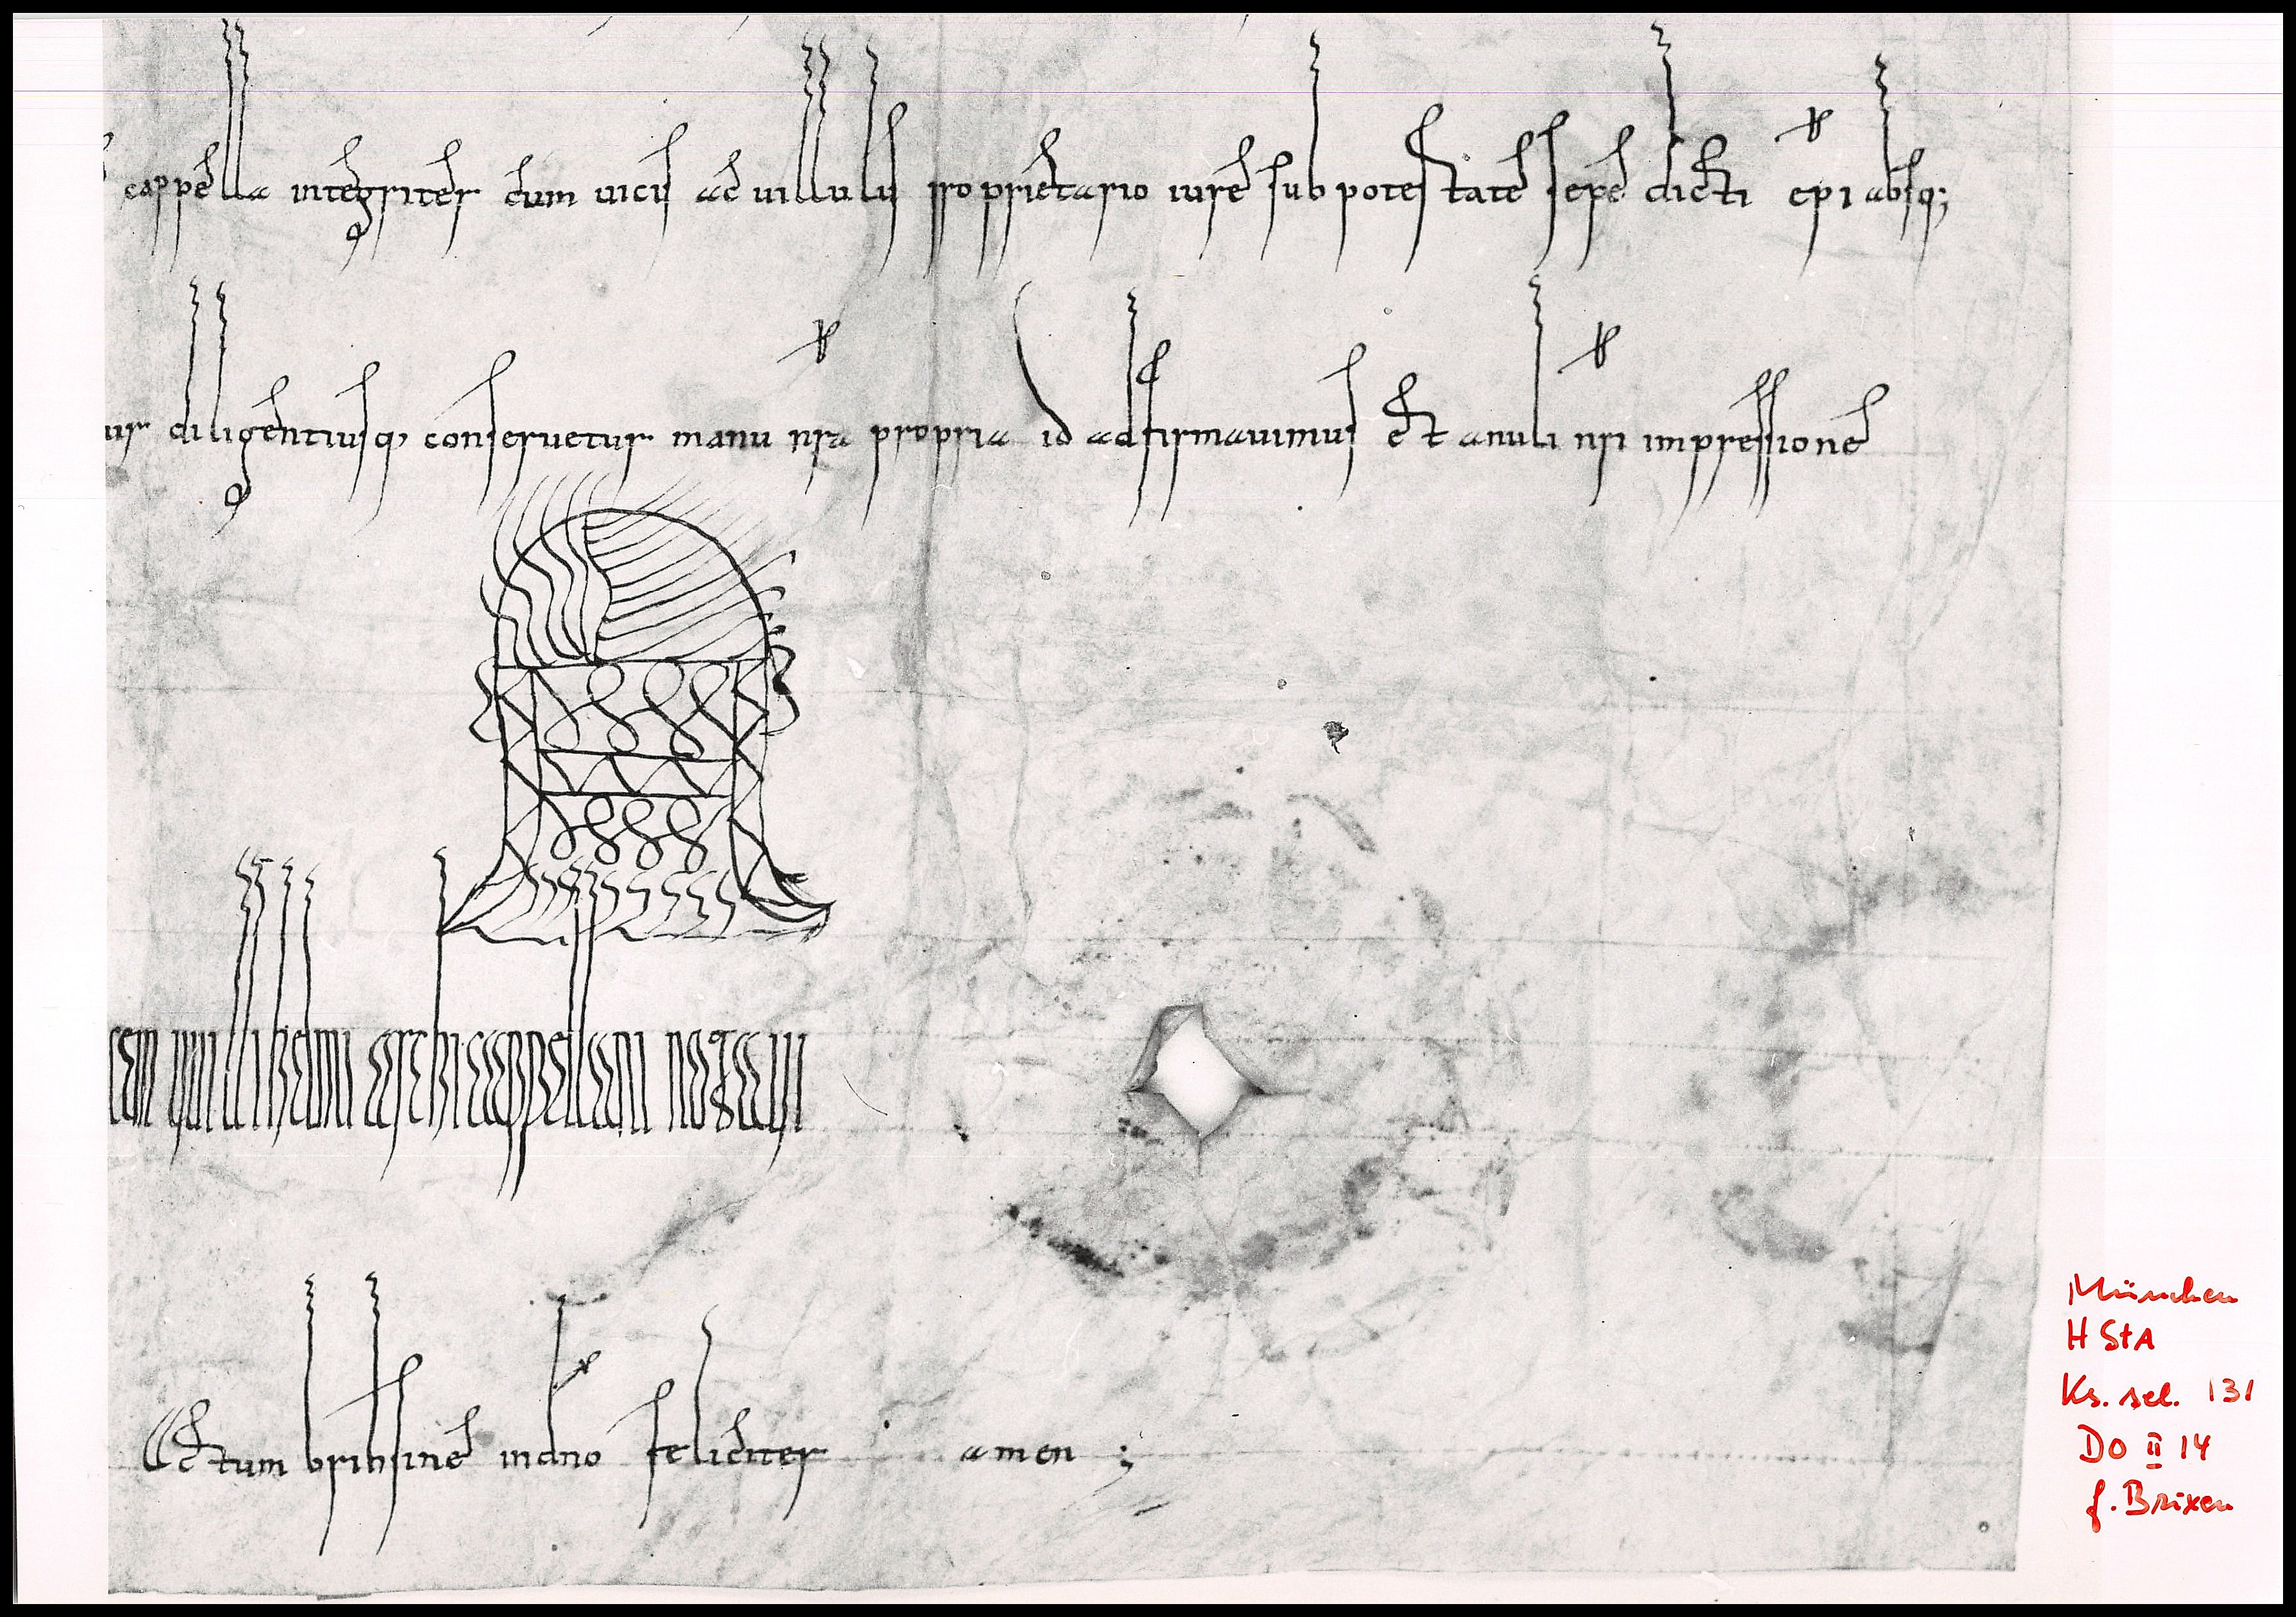 cappella integriter cum uicis ac uillulis proprietario iure sub potestate sepe dicti epi absq;
ur diligentiusq, conseruetur manu nra propria id adfirmauimus et anuli nri impressione
cem uuillihelmi archicappellani notaui
Actum bribsine in dno feliciter amen ;
München
H StA
Ks. sel. 131
DO II 14
f. Brixen